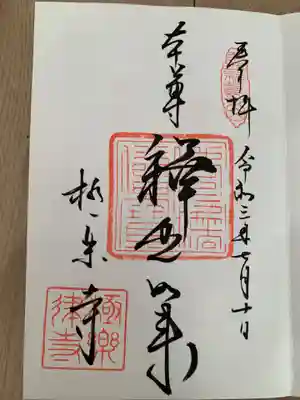 奉拝
令和三年七月十日
本尊
釋迦如来
極楽寺
極樂
律寺